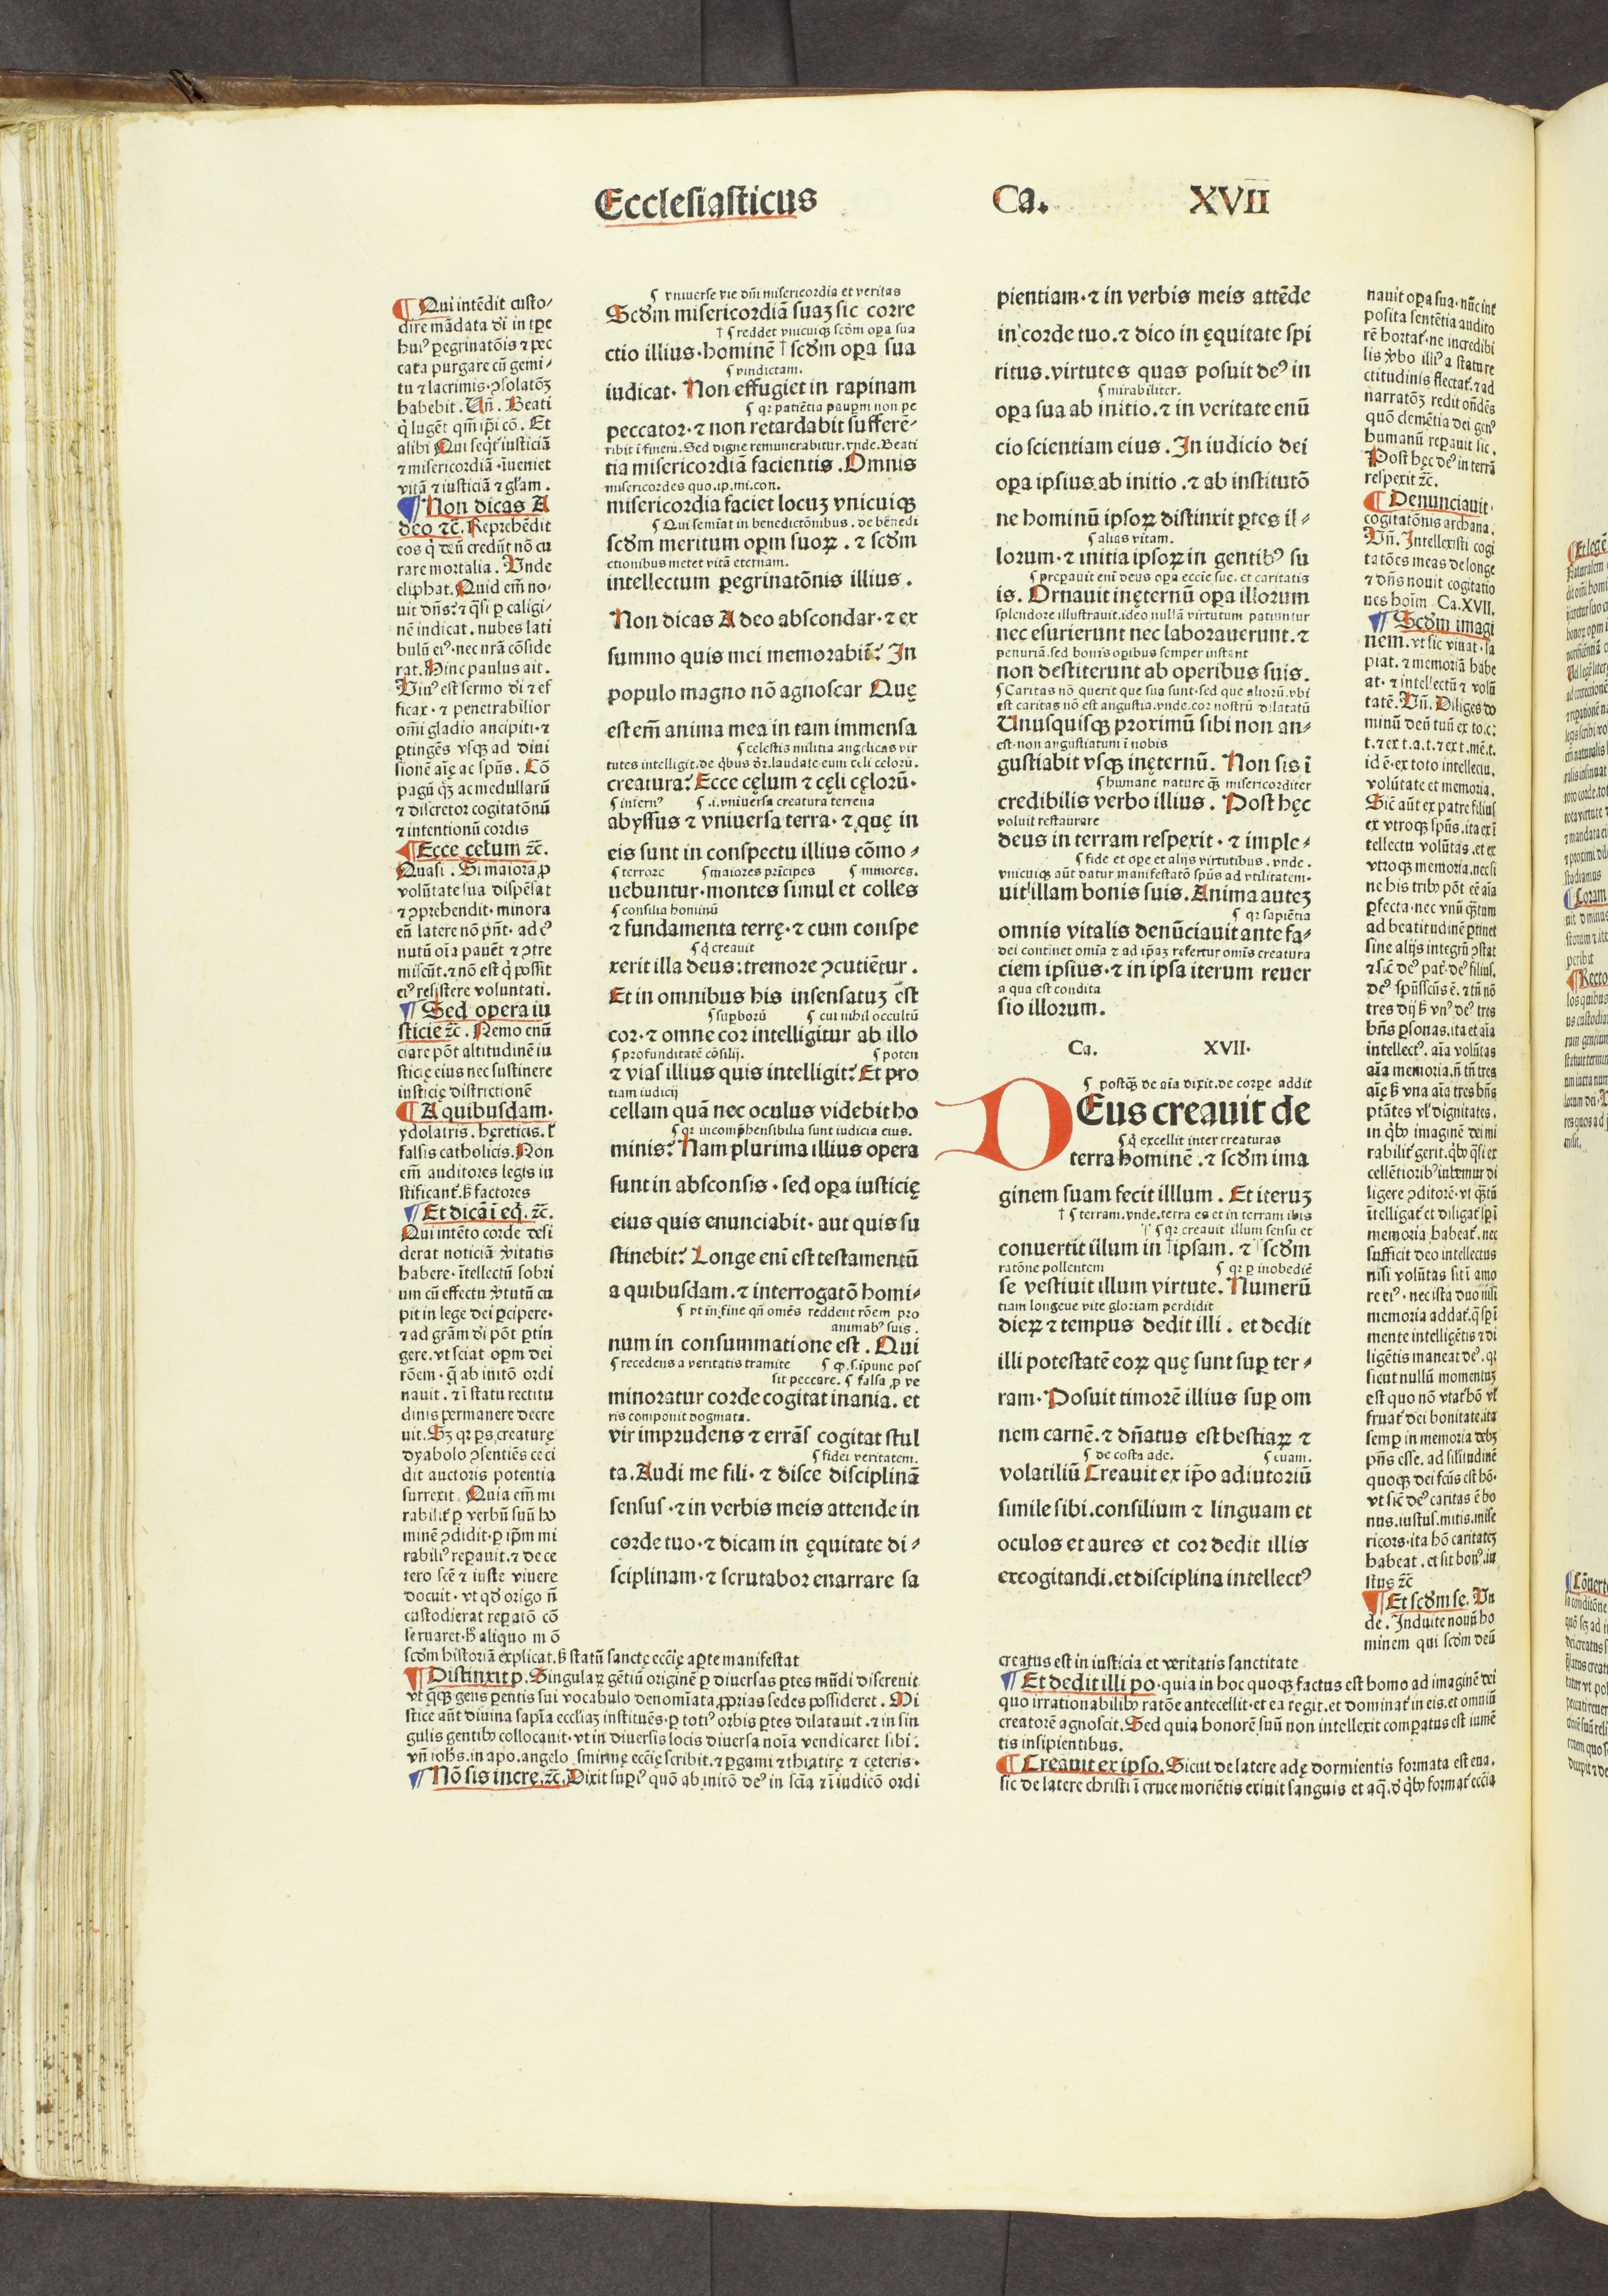 Ecclesiasticus Ca. XVII
¶ Qui intēdit custo/
dire mādata di in tpe
huiꝰ pegrinatōis ⁊ pec
cata purgare cū gemi/
tu ⁊ lacrimis ꝯsolatōꝫ
habebit. Uñ. Beati
q lugēt qm̄ ipi cō. Et
alibi Qui seqt iusticiā
⁊ misericordiā iueniet
vitā ⁊ iusticiā ⁊ glam.
¶ Non dicas A
deo ⁊c̄. Reprehēdit
eos q deū credūt nō cu
rare mortalia. Unde
eliphat. Quid em̄ no/
uit dn̄s? ⁊ qsi p caligi/
nē indicat. nubes lati
bulū eiꝰ nec nrā cōside
rat. Hinc paulus ait.
Viuꝰ est sermo di ⁊ ef
ficax. ⁊ penetrabilior
om̄i gladio ancipiti. ⁊
ptingēs vsqꝫ ad diui
sionē aīę ac spūs. Cō
pagū qꝫ ac medullarū
⁊ discretor cogitatōnū
⁊ intentionū cordis
¶ Ecce cęlum ⁊c̄.
Quasi. Si maiora, p
volūtate sua dispēsat
⁊ ꝯprehendit. minora
eū latere nō pn̄t. ad eꝰ
nutū oīa pauēt ⁊ ꝯtre
miscūt. ⁊ nō est q possit
eiꝰ resistere voluntati.
¶ Sed opera iu
sticię ⁊c̄. Nemo enū
ciare pōt altitudinē iu
sticię eius nec sustinere
iusticię districtionē
¶ A quibusdam.
ydolatris. hęreticis. ł
falsis catholicis. Non
em̄ auditores legis iu
stificant. ꝫ factores
¶ Et dicā ī eq. ⁊c̄.
Qui intēto corde desi
derat noticiā vitatis
habere. ītellectū sobri
um cū effectu vtutū cu
pit in lege dei pcipere.
⁊ ad grām di pōt ptin
gere. vt sciat opm dei
rōem. q ab initō ordi
nauit. ⁊ ī statu rectitu
dinis permanere decre
uit. Sꝫ qr ps creaturę
dyabolo ꝯsentiēs ceci
dit auctoris potentia
surrexit. Quia em̄ mi
rabilit p verbū suū ho
minē ꝯdidit. p ipm mi
rabiliꝰ repauit. ⁊ de ce
tero scē ⁊ iuste viuere
docuit. vt qd origo n̄
custodierat repatō cō
seruaret. hꝫ aliquo mō
scdm historiā explicat. ꝫ statū sanctę eccīę apte manifestat
¶ Distinxit p. Singulaꝝ gētiū originē p diuersas ptes mūdi discreuit
vt qꝫ gens pentis sui vocabulo denomīata, pprias sedes possideret. Mi
stice aūt diuina sapīa eccīaꝫ instituēs. p totiꝰ orbis ptes dilatauit. ⁊ in sin
gulis gentibꝰ collocauit. vt in diuersis locis diuersa noīa vendicaret sibi.
vn̄ iohs. in apo. angelo smirnę eccīę scribit. ⁊ pgami ⁊ thiatirę ⁊ ceteris.
¶ Nō sis incre. ⁊c̄. Dixit supiꝰ quō ab initō deꝰ in scīa ⁊ ī iudicō ordi
¶ vniuerse vie dni misericordia et veritas
Scdm misericordiā suaꝫ sic corre
† ¶ reddet vnicuiqꝫ scdm opa sua
ctio illius. hominē † scdm opa sua
¶ vindictam.
iudicat. Non effugiet in rapinam
¶ qr patiētia paupm non pe
peccator. ⁊ non retardabit sufferē-
ribit ī finem. Sed digne remunerabitur. vnde. Beati
tia misericordiā facientis. Omnis
misericordes quo. ip. mi. con.
misericordia faciet locuꝫ vnicuiqꝫ
¶ Qui semīat in benedictōnibus. de benedi
scdm meritum opm suoꝝ. ⁊ scdm
ctionibus metet vitā eternam.
intellectum pegrinatōnis illius.
Non dicas A deo abscondar. ⁊ ex
summo quis mei memorabit̄? In
populo magno nō agnoscar Quę
est em̄ anima mea in tam immensa
¶ celestis militia angelicas vir
tutes intelligit. de qbus dr. laudate eum celi celorū.
creatura? Ecce cęlum ⁊ cęli cęlorū.
¶ infernꝰ ¶ .i. vniuersa creatura terrena
abyssus ⁊ vniuersa terra. ⁊ quę in
eis sunt in conspectu illius cōmo-
¶ terrore ¶ maiores prīcipes ¶ minores.
uebuntur. montes simul et colles
¶ consilia hominū
⁊ fundamenta terrę. ⁊ cum conspe
¶ q creauit
xerit illa deus: tremore ꝯcutiētur.
Et in omnibus his insensatuꝫ est
¶ supborū ¶ cui nihil occultū
cor. ⁊ omne cor intelligitur ab illo
¶ profunditatē cōsilij. ¶ poten
⁊ vias illius quis intelligit? Et pro
tiam iudicij
cellam quā nec oculus videbit ho
¶ qr incomphensibilia sunt iudicia eius.
minis? Nam plurima illius opera
sunt in absconsis. sed opa iusticię
eius quis enunciabit. aut quis su
stinebit? Longe enī est testamentū
a quibusdam. ⁊ interrogatō homi-
¶ vt in fine qn̄ omēs reddent rōem pro
animabꝰ suis.
num in consummatione est. Qui
¶ recedens a veritatis tramite ¶ qp. s. ipune pos
sit peccare. ¶ falsa, p ve
minoratur corde cogitat inania. et
ris componit dogmata.
vir imprudens ⁊ errās cogitat stul
¶ fidei veritatem.
ta. Audi me fili. ⁊ disce disciplinā
sensus. ⁊ in verbis meis attende in
corde tuo. ⁊ dicam in ęquitate di-
sciplinam. ⁊ scrutabor enarrare sa
pientiam. ⁊ in verbis meis attēde
in corde tuo. ⁊ dico in ęquitate spi
ritus. virtutes quas posuit deꝰ in
¶ mirabiliter.
opa sua ab initio. ⁊ in veritate enū
cio scientiam eius. In iudicio dei
opa ipsius ab initio. ⁊ ab institutō
ne hominū ipsoꝝ distinxit ptes il-
¶ alias vitam.
lorum. ⁊ initia ipsoꝝ in gentibꝰ su
¶ prepauit enī deus opa eccīe sue. et caritatis
is. Ornauit inęternū opa illorum
splendore illustrauit. ideo nullā virtutum patiuntur
nec esurierunt nec laborauerunt. ⁊
penuriā. sed bonis opibus semper instant
non destiterunt ab operibus suis.
¶ Caritas nō querit que sua sunt. sed que aliorū. vbi
est caritas nō est angustia. vnde. cor nostrū dilatatū
Unusquisqꝫ proximū sibi non an-
est. non angustiatum ī nobis
gustiabit vsqꝫ inęternū. Non sis ī
¶ humane nature qꝫ misericorditer
credibilis verbo illius. Post hęc
voluit restaurare
deus in terram respexit. ⁊ imple-
¶ fide et ope et alijs virtutibus. vnde.
vnicuiqꝫ aūt datur manifestatō spūs ad vtilitatem.
uit illam bonis suis. Anima auteꝫ
¶ qr sapiētia
omnis vitalis denūciauit ante fa-
dei continet omīa ⁊ ad ipaꝫ refertur omīs creatura
ciem ipsius. ⁊ in ipsa iterum reuer
a qua est condita
sio illorum.
Ca. XVII.
¶ postqꝫ de aīa dixit. de corpe addit
DEus creauit de
¶ q excellit inter creaturas
terra hominē. ⁊ scdm ima
ginem suam fecit illlum. Et iteruꝫ
† ¶ terram. vnde. terra es et in terram ibis
†† ¶ qr creauit illum sensu et
conuertit illum in † ipsam. ⁊ †† scdm
ratōne pollentem ¶ qr p inobediē
se vestiuit illum virtute. Numerū
tiam longeue vite gloriam perdidit
dieꝝ ⁊ tempus dedit illi. et dedit
illi potestatē eoꝝ quę sunt sup ter-
ram. Posuit timorē illius sup om
nem carnē. ⁊ dn̄atus est bestiaꝝ ⁊
¶ de costa ade. ¶ euam.
volatiliū Creauit ex ipo adiutoriū
simile sibi. consilium ⁊ linguam et
oculos et aures et cor dedit illis
excogitandi. et disciplina intellectꝰ
nauit opa sua. nūc int
posita sentētia audito
rē hortat. ne incredibi
lis vbo illiꝰ a stature
ctitudinis flectat. ⁊ ad
narratōꝫ redit ondēs
quō clemētia dei genꝰ
humanū repauit sic.
Post hęc deꝰ in terrā
respexit ⁊c̄.
¶ Denunciauit.
cogitatōnis archana.
Vn̄. Intellexisti cogi
tatōes meas de longe
⁊ dn̄s nouit cogitatio
nes hoīm Ca. XVII.
¶ Scdm imagi
nem. vt sic viuat. sa
piat. ⁊ memoriā habe
at. ⁊ intellectū ⁊ volū
tatē. Vn̄. Diliges do
minū deū tuū ex to. c:
t. ⁊ ex t. a. t. ⁊ ex t. mē. t.
id ē. ex toto intellectu.
volūtate et memoria.
Sic aūt ex patre filius
ex vtroqꝫ spūs. ita ex ī
tellectu volūtas. et ex
vtroqꝫ memoria. nec si
ne his tribꝰ pōt eē aīa
pfecta. nec vnū qꝫtum
ad beatitudinē ptinet
sine alijs integrū ꝯstat
⁊ sic deꝰ pat. deꝰ filius.
deꝰ spūsscūs ē. ⁊ tn̄ nō
tres dij ꝫ vnꝰ deꝰ tres
hn̄s psonas. ita et aīa
intellectꝰ. aīa volūtas
aīa memoria. n̄ tn̄ tres
aīę ꝫ vna aīa tres hn̄s
ptātes vł dignitates.
in qbꝰ imaginē dei mi
rabilit gerit. qbꝰ qsi ex
cellētioribꝰ iubemur di
ligere ꝯditorē. vt qꝫtū
ītelligat et diligat spī
memoria habeat. nec
sufficit deo intellectus
nisi volūtas sit ī amo
re eiꝰ. nec ista duo nisi
memoria addat. q spī
mente intelligētis ⁊ di
ligētis maneat deꝰ. qr
sicut nullū momentuꝫ
est quo nō vtat hō vł
fruat dei bonitate. ita
semp in memoria debꝫ
pn̄s esse. ad silitudinē
quoqꝫ dei fcūs est hō.
vt sic deꝰ caritas ē bo
nus. iustus. mitis. mise
ricors. ita hō caritateꝫ
habeat. et sit bonꝰ. iu
stus ⁊c̄
¶ Et scdm se. Vn
de. Induite nouū ho
minem qui scdm deū
creatus est in iusticia et veritatis sanctitate
¶ Et dedit illi po. quia in hoc quoqꝫ factus est homo ad imaginē dei
quo irrationabilibꝰ ratōe antecellit. et ea regit. et dominat in eis. et omniū
creatorē agnoscit. Sed quia honorē suū non intellexit compatus est iumē
tis insipientibus.
¶ Creauit ex ipso. Sicut de latere adę dormientis formata est eua.
sic de latere christi ī cruce moriētis exiuit sanguis et aq. d qbꝰ format eccīa